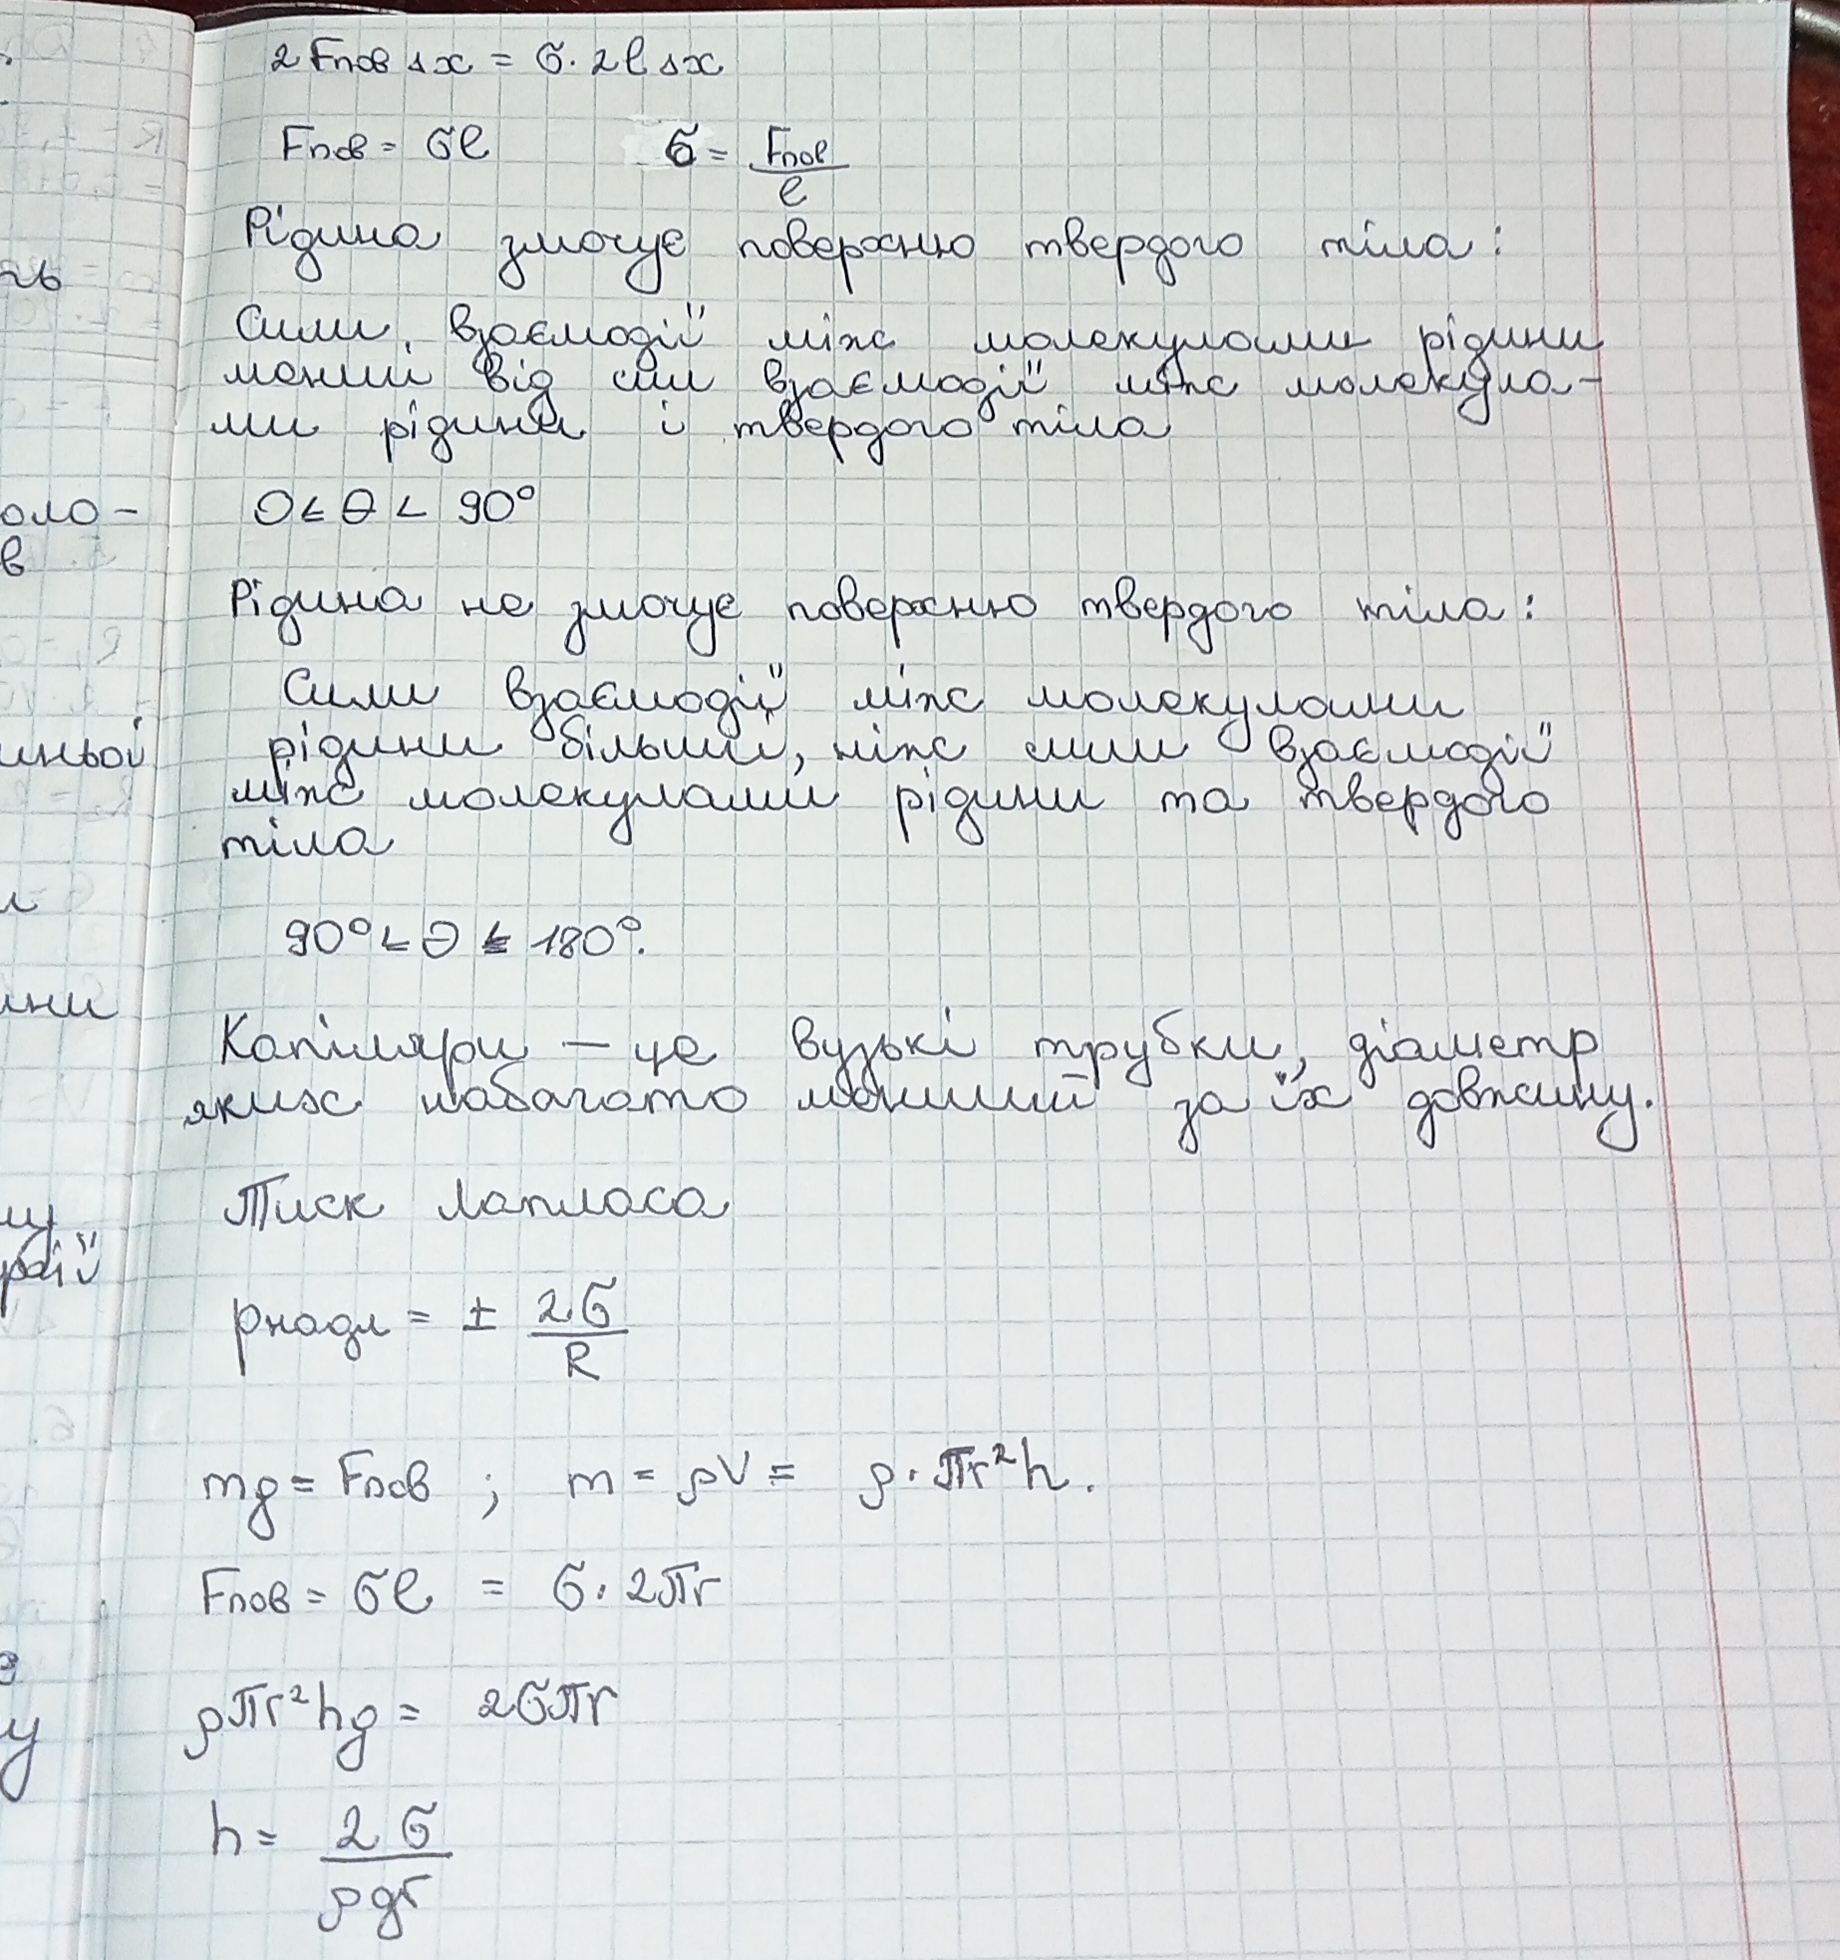 2Fпов Δx = σ · 2lΔx
Fпов = σl    σ = Fпов / l
Рідина змочує поверхню твердого тіла:
Сили взаємодії між молекулами рідини
менші від сил взаємодії між молекула-
ми рідини і твердого тіла
0 ≤ θ < 90°
Рідина не змочує поверхню твердого тіла:
Сили взаємодії між молекулами
рідини більші, ніж сили взаємодії
між молекулами рідини та твердого
тіла
90° < θ ≤ 180°.
Капіляри – це вузькі трубки, діаметр
яких набагато менший за їх довжину.
Тиск Лапласа
pнадл = ± 2σ / R
mg = Fпов ; m = ρV = ρ · πr²h.
Fпов = σl = σ · 2πr
ρπr²hg = 2σπr
h = 2σ / ρgr